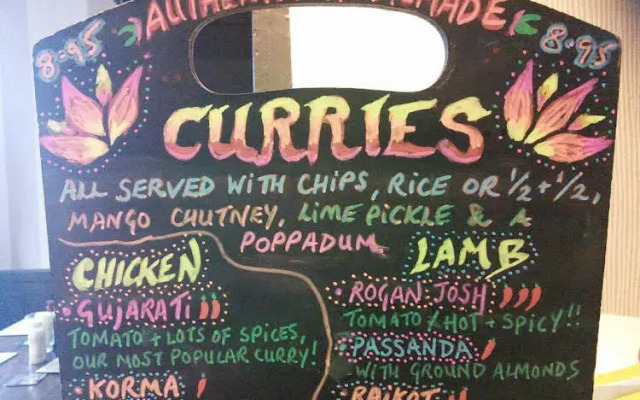 8.95 AUTHENTIC HOMEMADE 8.95
CURRIES
ALL SERVED WITH CHIPS, RICE OR 1/2 + 1/2,
MANGO CHUTNEY, LIME PICKLE & A
POPPADUM
CHICKEN
• GUJARATI
TOMATO + LOTS OF SPICES,
OUR MOST POPULAR CURRY!
• KORMA
LAMB
• ROGAN JOSH
TOMATO / HOT + SPICY!!
• PASSANDA
WITH GROUND ALMONDS
• RAJKOT